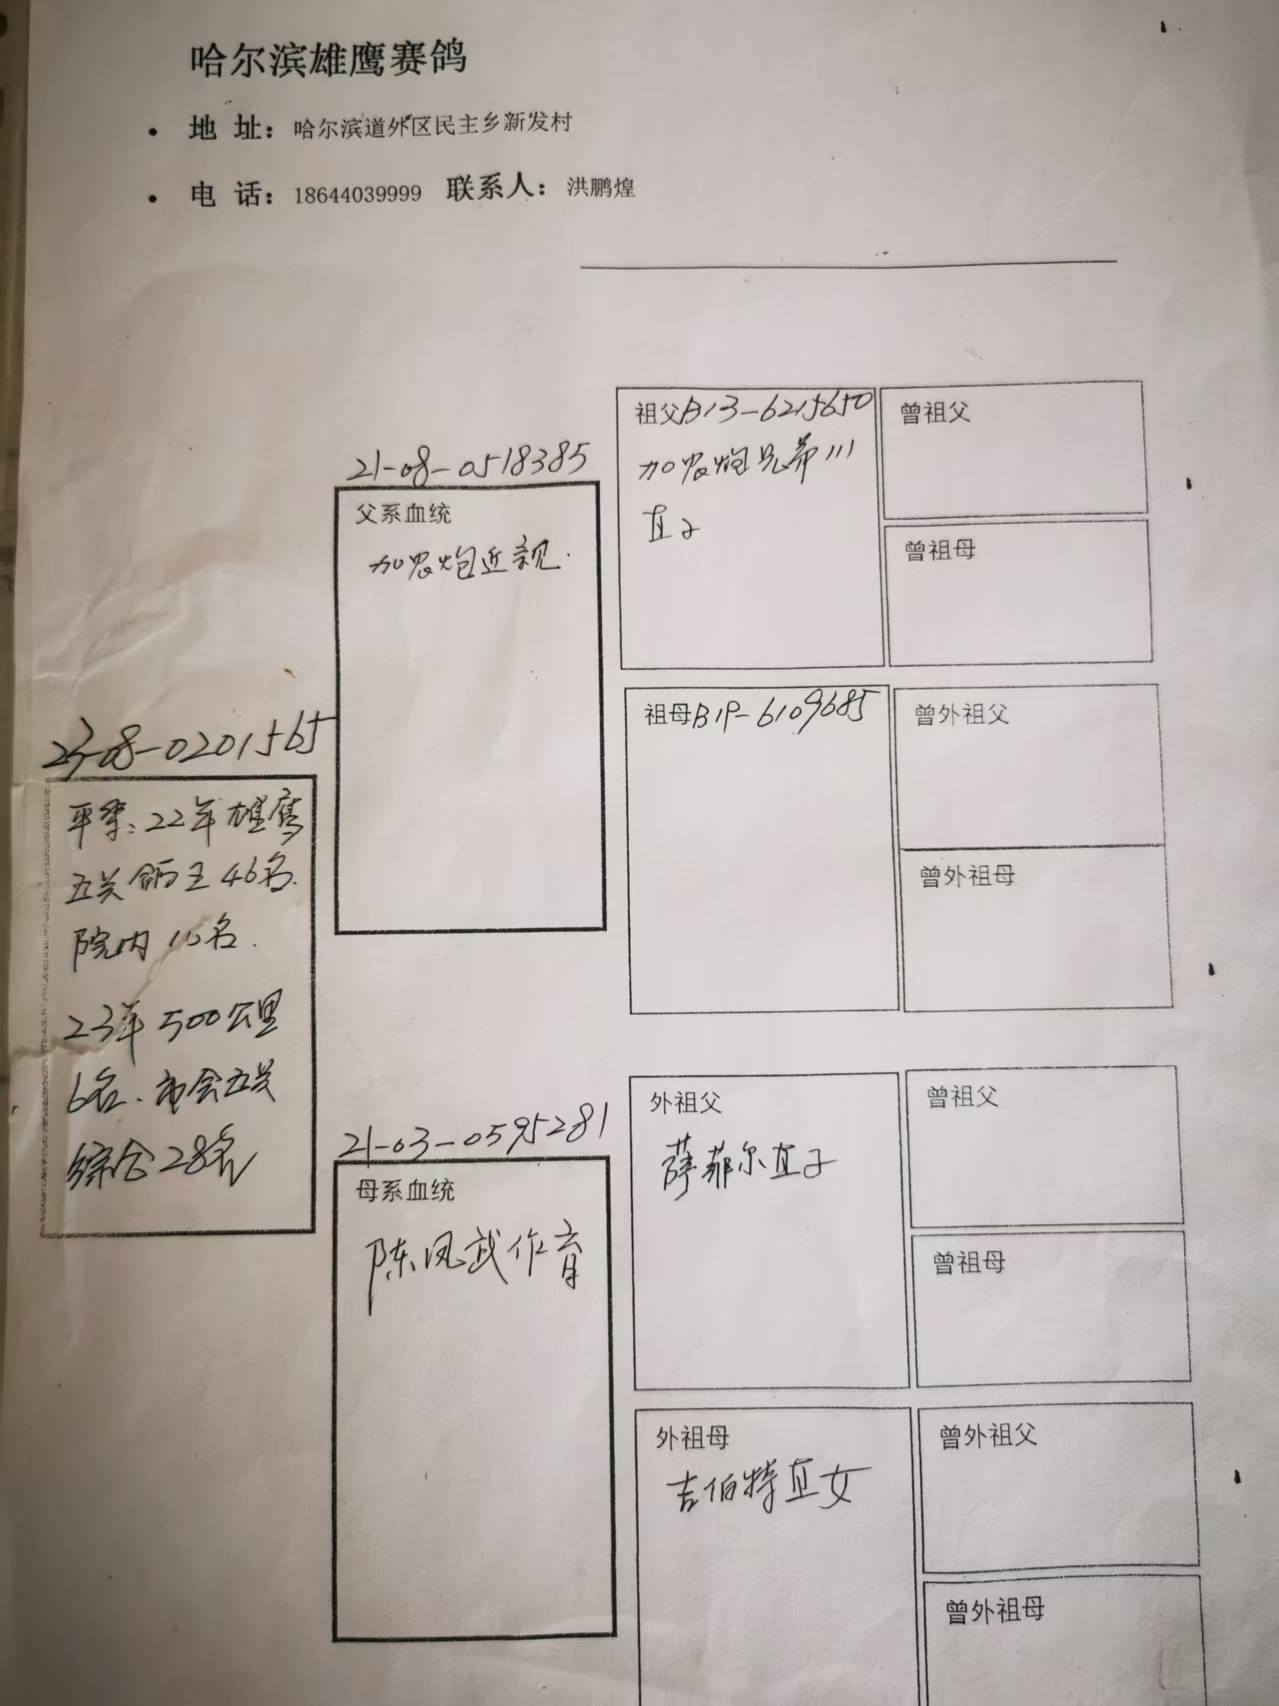 哈尔滨雄鹰赛鸽
• 地 址：哈尔滨道外区民主乡新发村
• 电 话：18644039999 联系人：洪鹏煌
23-08-0201565
22年雄鹰
五关鸽王46名.
院内10名.
23年500公里
6名.市会五关
综合28名
21-08-0518385
父系血统
加农炮近亲.
21-03-0595281
母系血统
陈凤武作育
祖父B13-6215650
加农炮兄弟111
直子
曾祖父
曾祖母
祖母B19-6109685
曾外祖父
曾外祖母
外祖父
萨菲尔直子
曾祖父
曾祖母
外祖母
吉伯特直女
曾外祖父
曾外祖母